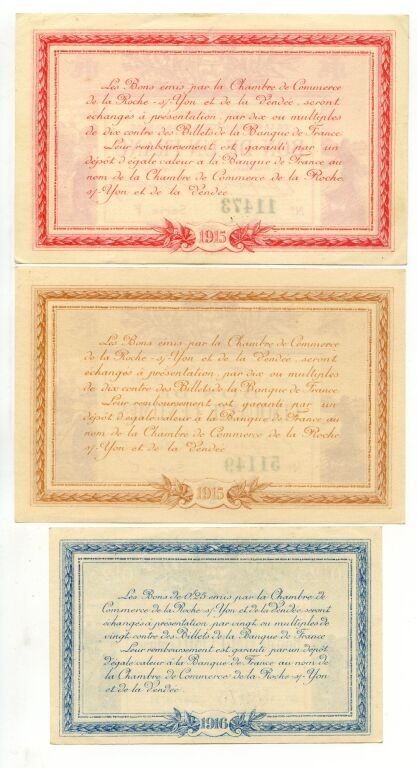 Les Bons émis par la Chambre de Commerce
de la Roche-s/-Yon et de la Vendée, seront
échangés à présentation, par dix ou multiples
de dix contre des Billets de la Banque de France
Leur remboursement est garanti par un
dépôt d'égale valeur à la Banque de France au
nom de la Chambre de Commerce de la Roche
s/-Yon et de la Vendée
11473
1915
Les Bons émis par la Chambre de Commerce
de la Roche-s/-Yon et de la Vendée, seront
échangés à présentation, par dix ou multiples
de dix contre des Billets de la Banque de France
Leur remboursement est garanti par un
dépôt d'égale valeur à la Banque de France au
nom de la Chambre de Commerce de la Roche
s/-Yon et de la Vendée
51149
1915
Les Bons de 0,25 émis par la Chambre de
Commerce de la Roche-s/-Yon et de la Vendée, seront
échangés à présentation par vingt ou multiples de
vingt contre des Billets de la Banque de France
Leur remboursement est garanti par un dépôt
d'égale valeur à la Banque de France au nom de
la Chambre de Commerce de la Roche-s/-Yon
et de la Vendée
1916